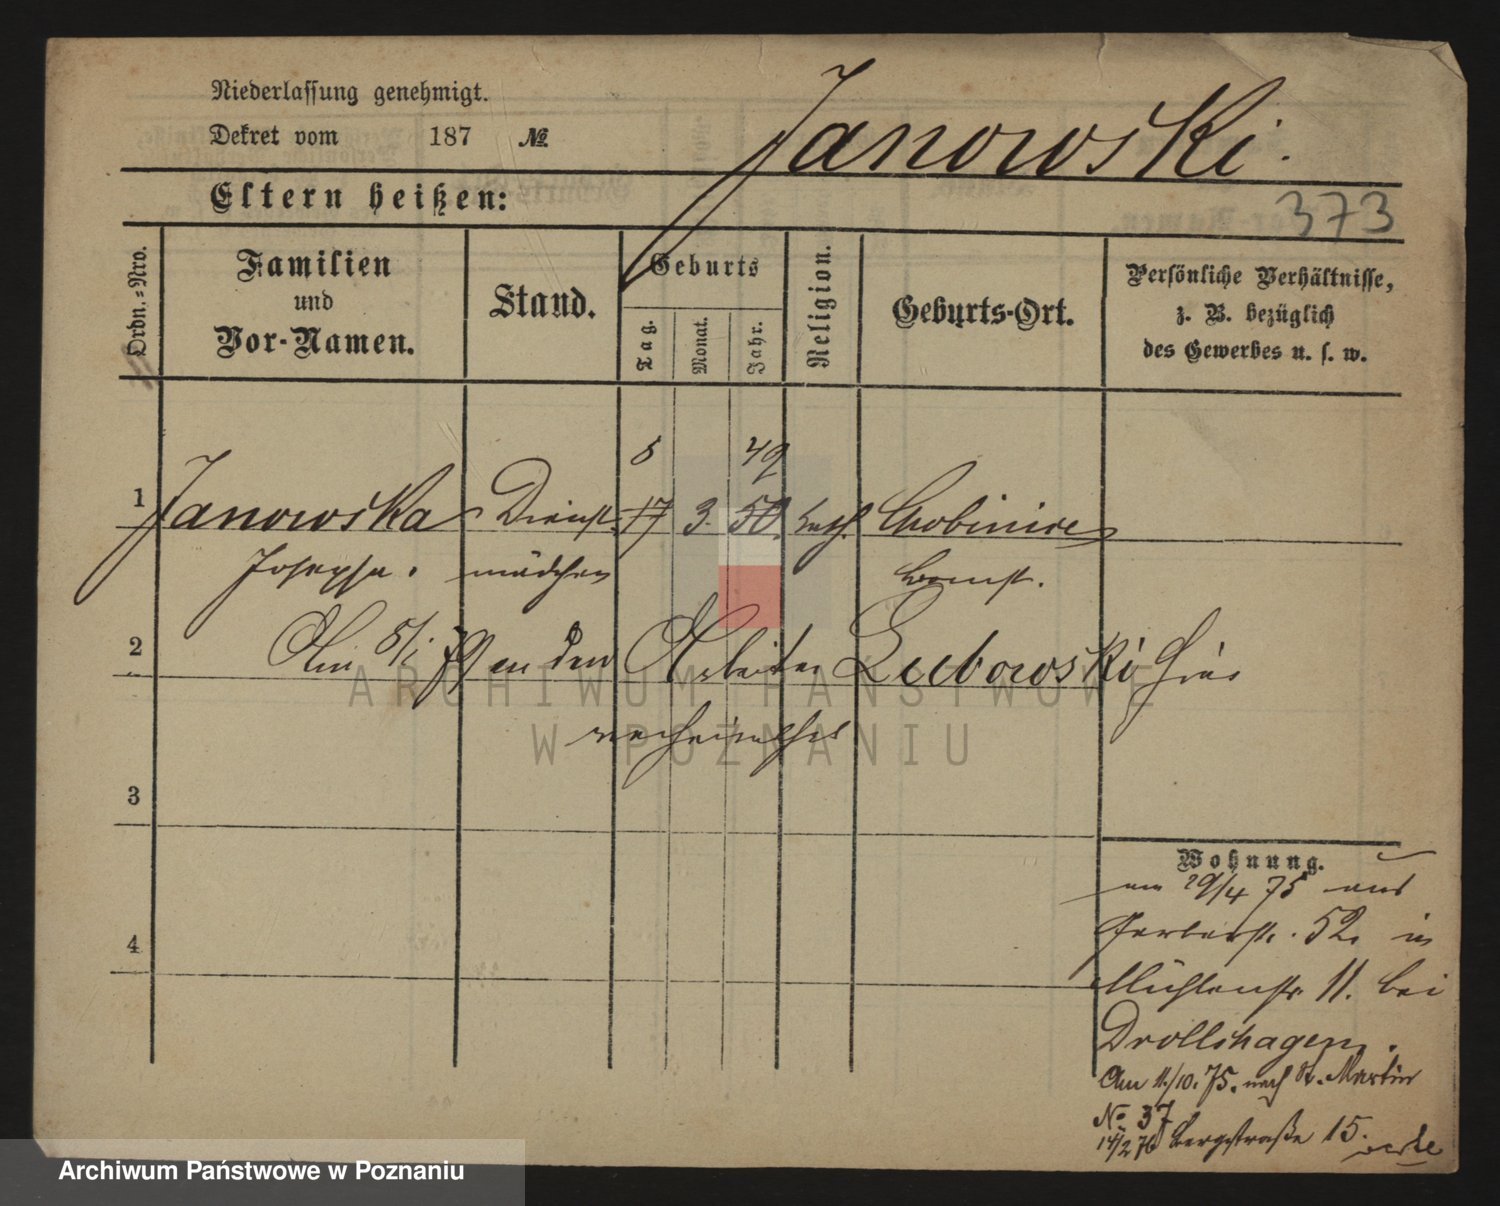 Niederlassung genehmigt.
Dekret vom 187 №
Janowski.
Eltern heißen:
373
Ordn.-Nro.
Familien
und
Vor-Namen.
Stand.
Geburts
Tag.
Monat.
Jahr.
Religion.
Geburts-Ort.
Persönliche Verhältnisse,
z. B. bezüglich
des Gewerbes u. s. w.
5 49
1 Janowska Dienst- 17 3. 50. kath.
Josepha. mädchen Bomst.
2 Am 5/1 79 an den Arbeiter Lubowski hier
verheirathet
3
4
Wohnung.
am 29/4 75 aus
Gerberstr. 52. in
Mühlenstr 11. bei
Drollshagen.
Am 11./10. 75. nach St. Martin
No 37
14/2 76 Bergstraße 15.
ARCHIWUM PAŃSTWOWE
W POZNANIU
Archiwum Państwowe w Poznaniu